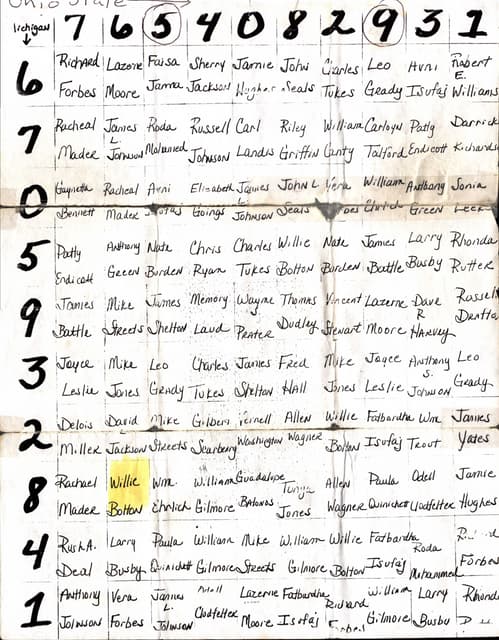 Ohio State
Michigan 7 6 5 4 0 8 2 9 3 1
6
Richard Lazerne Faisa Sherry Jamie John Charles Leo Avni Robert E.
Forbes Moore Jama Jackson Hughes Seals Tukes Grady Isufaj Williams
7
Racheal James L. Roda Russell Carl Riley William Carloyn Patty Darrick
Mader Johnson Mohamed Johnson Landis Griffin Canty Talford Endicott Richards
0
Gayneta Racheal Avni Elizabeth James L. John L Vera William Anthony Sonia
Bennett Mader Isufaj Goings Johnson Seals Ehrlich Green Leek
5
Patty Anthony Nate Chris Charles Willie Nate James Larry Rhonda
Endicott Green Borden Ryan Tukes Bolton Borden Battle Busby Rutter
9
James Mike James Memory Wayne Thomas Vincent Lazerne Dave R Russell
Battle Streets Shelton Laud Prater Dudley Stewart Moore Harvey
3
Joyce Mike Leo Charles James Fred Mike Joyce Anthony S. Leo
Leslie Jones Grady Tukes Shelton Hall Jones Leslie Johnson Grady
2
Delois David Mike Gilbert Allen Willie Fatbardha Wm James
Miller Jackson Streets Searberry Washington Wagner Bolton Isufaj Trout Yates
8
Rachael Willie Wm. William Guadalupe Tonya Allen Paula Odell Jamie
Mader Bolton Ehrlich Gilmore Batonos Jones Wagner Quinichett Clodfelter Hughes
4
Rush A. Larry Paula William Mike William Willie Fatbardha Roda
Deal Busby Quinichett Gilmore Streets Gilmore Bolton Isufaj Mohammed Forbes
1
Anthony Vera James L. Odell Lazerne Fatbardha Richard William Larry Rhonda
Johnson Forbes Johnson Clodfelter Moore Isufaj Forbes Gilmore Busby